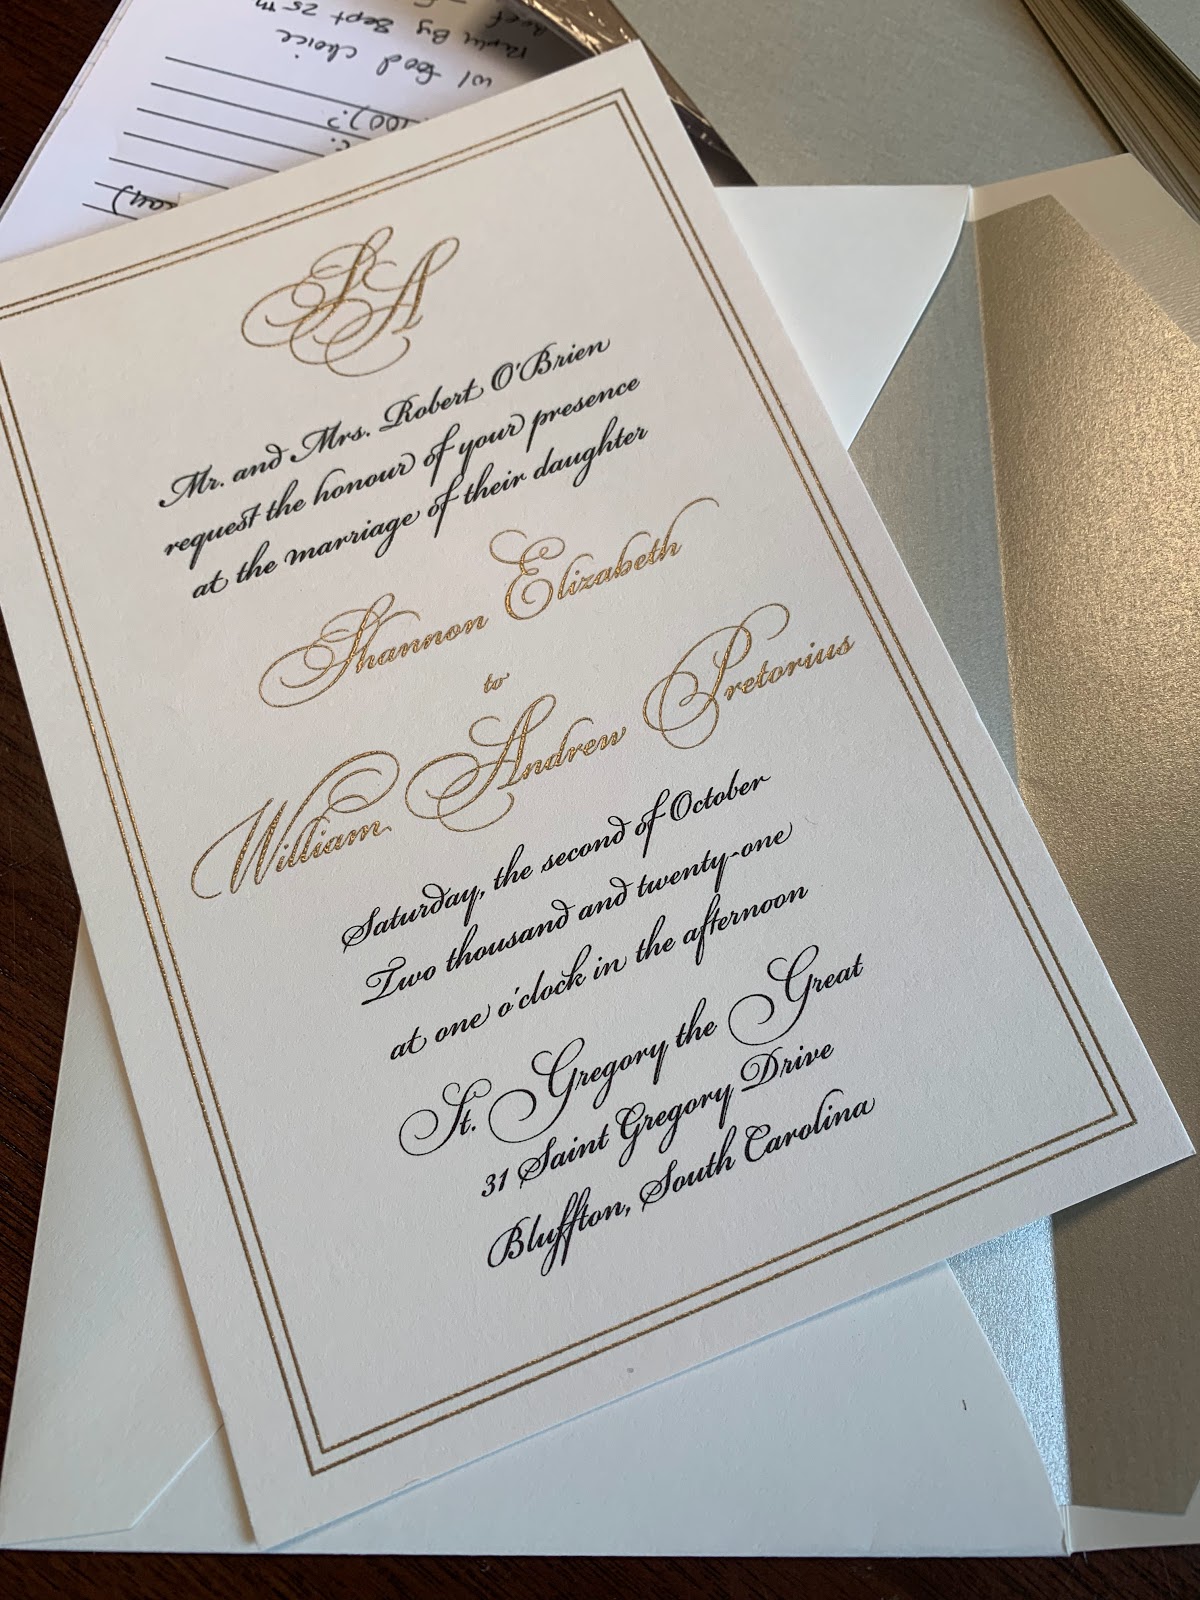 w/ food choice
Reply By Sept 25th
Beef
100).?
SA
Mr. and Mrs. Robert O'Brien
request the honour of your presence
at the marriage of their daughter
Shannon Elizabeth
to
William Andrew Pretorius
Saturday, the second of October
Two thousand and twenty-one
at one o'clock in the afternoon
St. Gregory the Great
31 Saint Gregory Drive
Bluffton, South Carolina